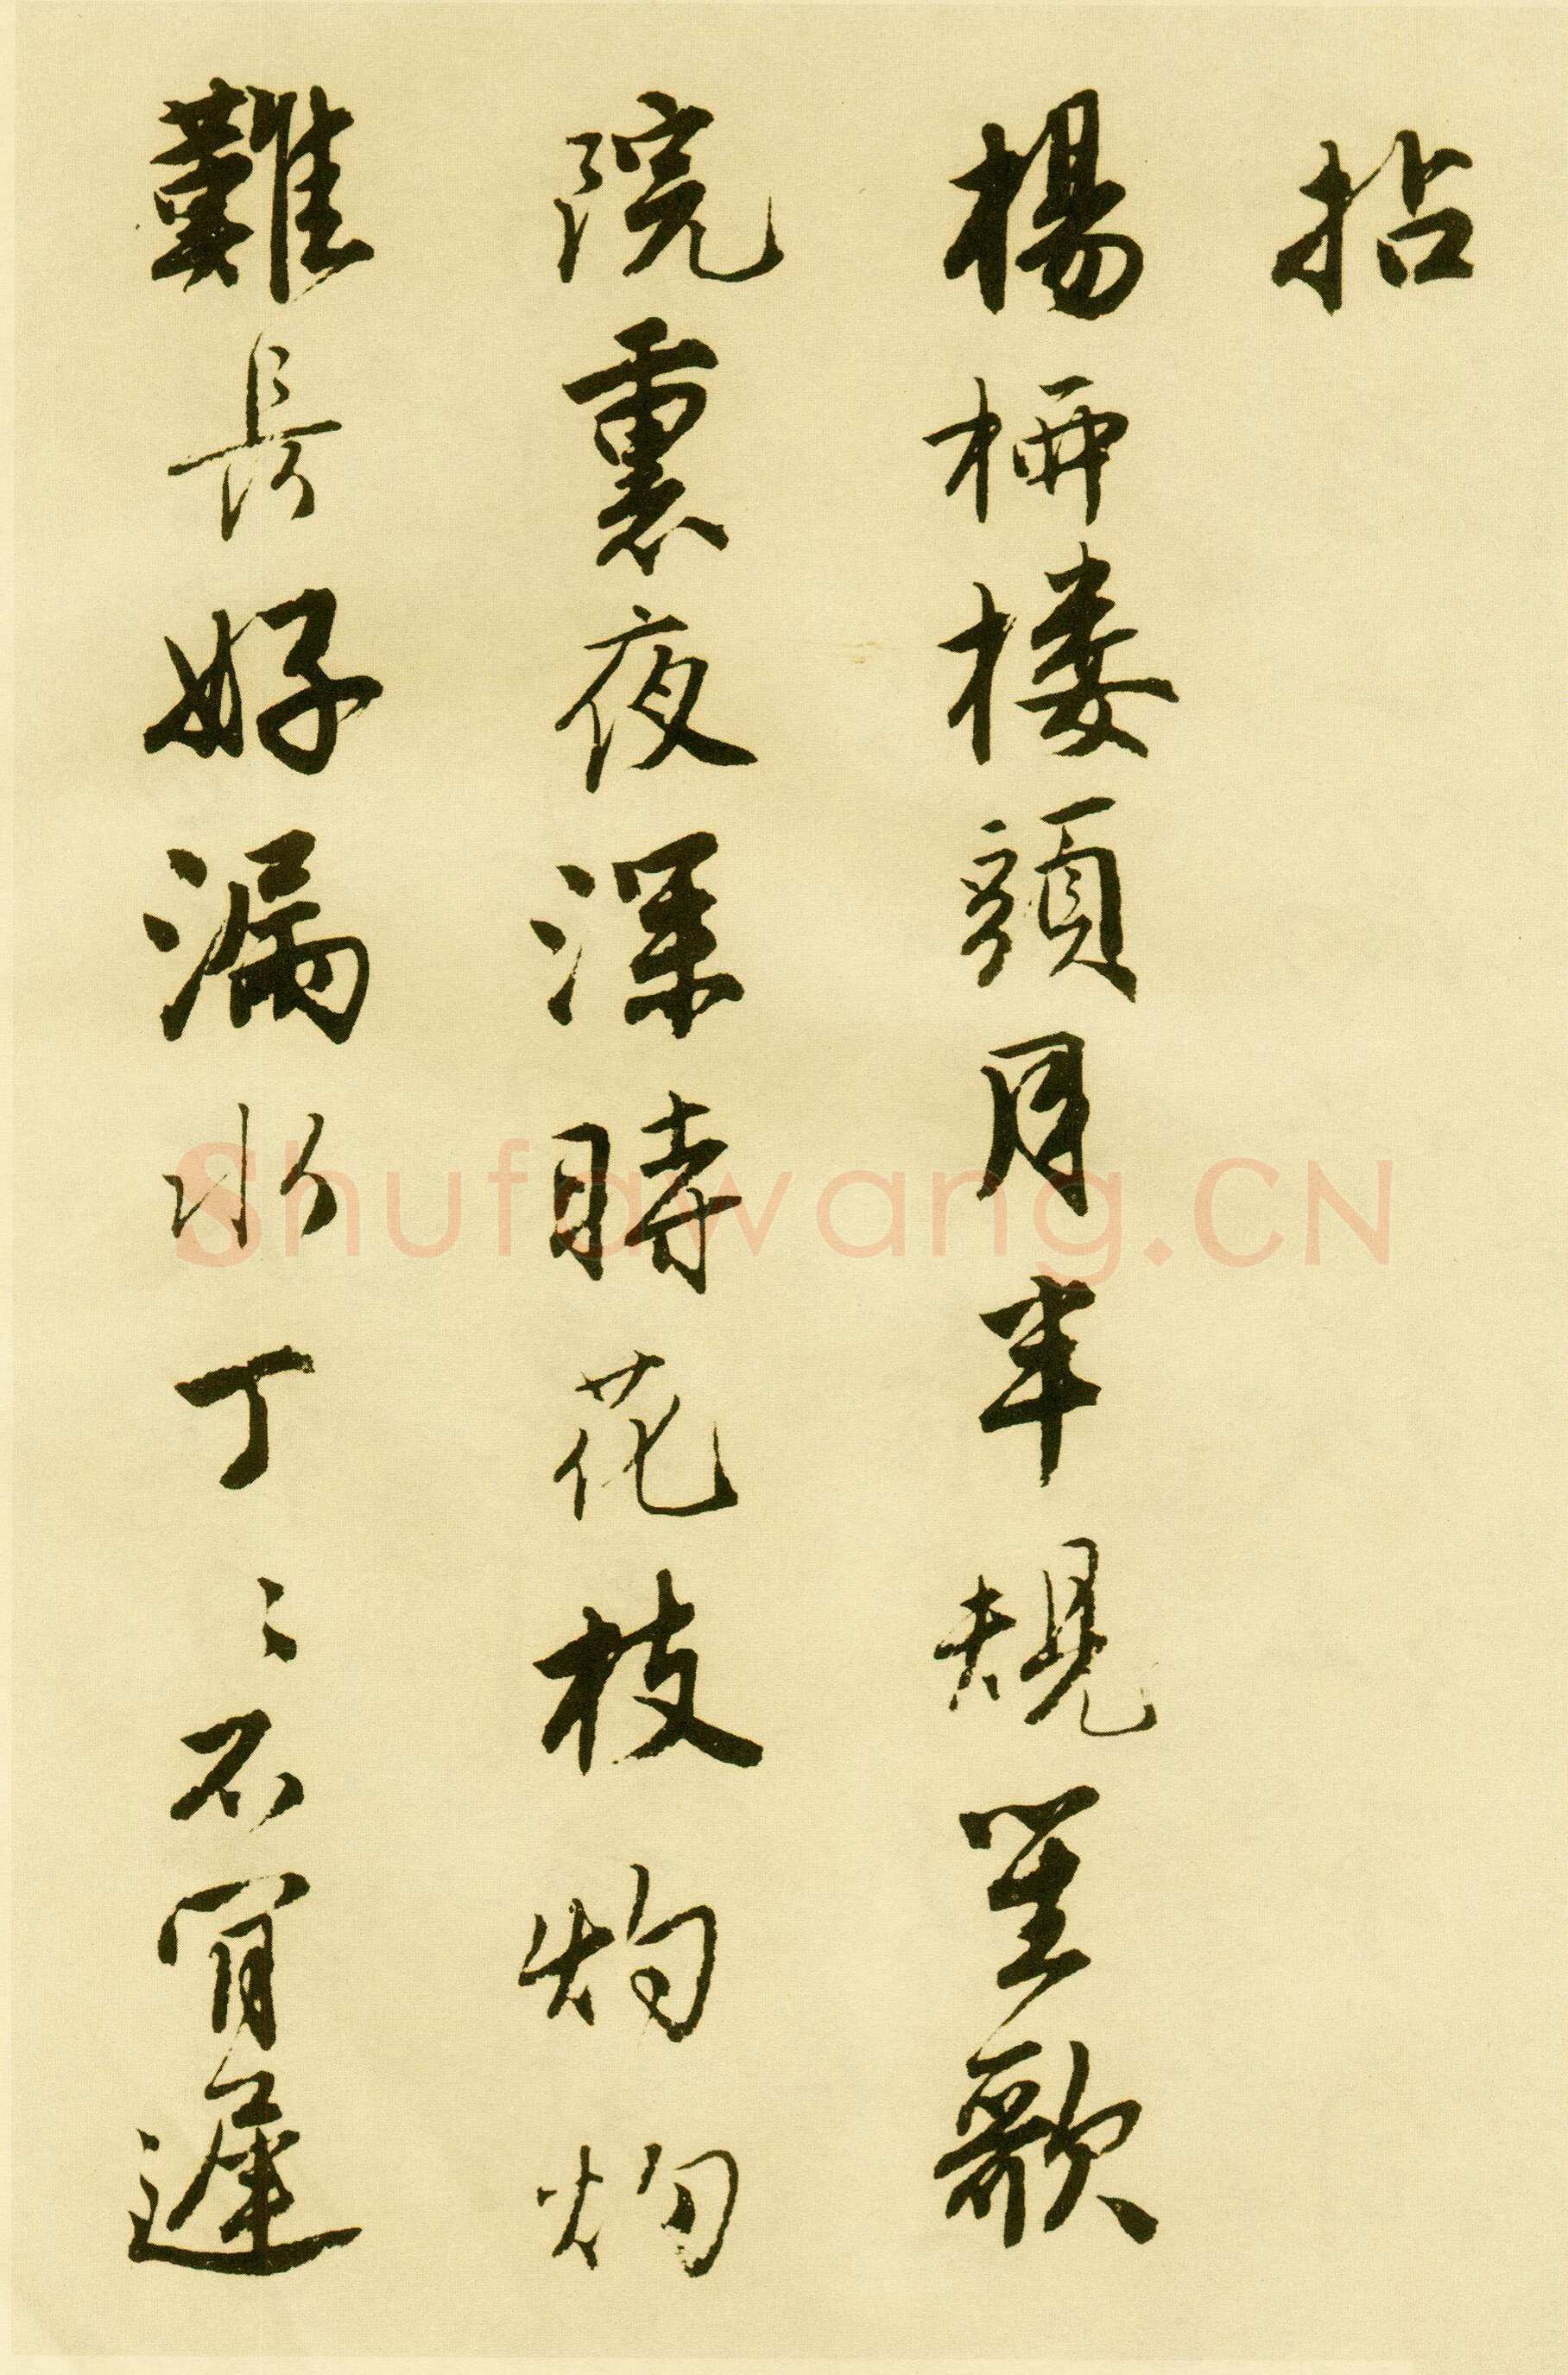 拈
楊柳樓頭月半規笙歌
院裏夜深時花枝灼灼
難長好漏水丁〻不肯遲
Shufawang.CN